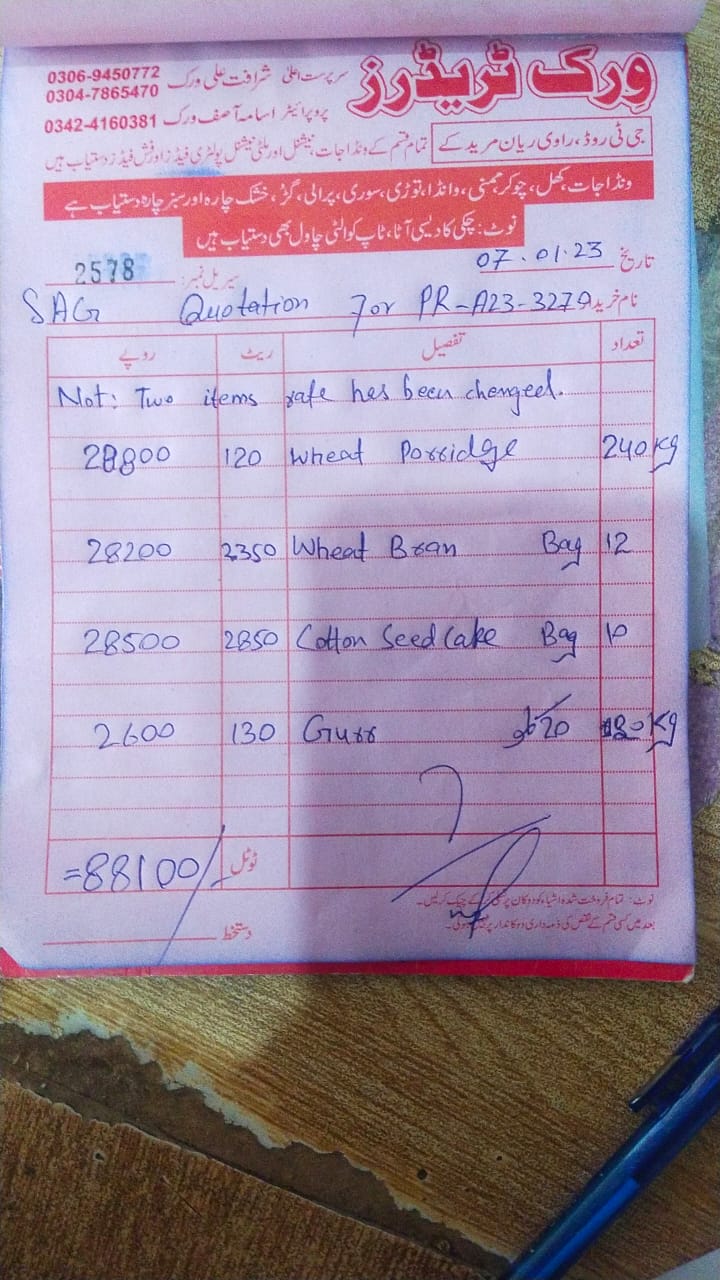 ورک ٹریڈرز
سرپرست اعلیٰ شرافت علی ورک 0306-9450772
0304-7865470
پروپرائیٹر اسامہ آصف ورک 0342-4160381
جی ٹی روڈ، راوی ریان مرید کے
تمام قسم کے ونڈا جات، نیشنل اور ملٹی نیشنل پولٹری فیڈز اور فش فیڈز دستیاب ہیں
ونڈا جات، کھل، چوکر، چھنی، وانڈا، توڑی، سوری، پرالی، گڑ، خشک چارہ اور سبز چارہ دستیاب ہے
نوٹ: چکی کا دیسی آٹا، ٹاپ کوالٹی چاول بھی دستیاب ہیں
تاریخ 07.01.23 سیریل نمبر: 2578
نام خریدار SAG Quotation for PR-A23-3279
تعداد تفصیل ریٹ روپے
Not: Two items rate has been chenged.
28800 120 Wheat Porridge 240 Kg
28200 2350 Wheat Bran Bag 12
28500 2850 Cotton Seed Cake Bag 10
2600 130 Gurr 20 کلو 20 Kg
ٹوٹل =88100/-
نوٹ: تمام فروخت شدہ اشیاء کو دوکان پر ہی چیک کر لیں۔
بعد میں کسی قسم کے نقص کی ذمہ داری دوکاندار پر نہیں ہو گی۔
دستخط